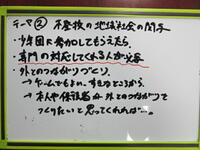 テーマ② 不登校の地域社会の関与
・少年団に参加してもらえたら。
・専門の対応してくれる人が必要
・外とのつながりづくり。
→ゲームでもよい。すきなところから。
→本人や保護者が外とのつながりを
つくりたいと思ってくれれば…。